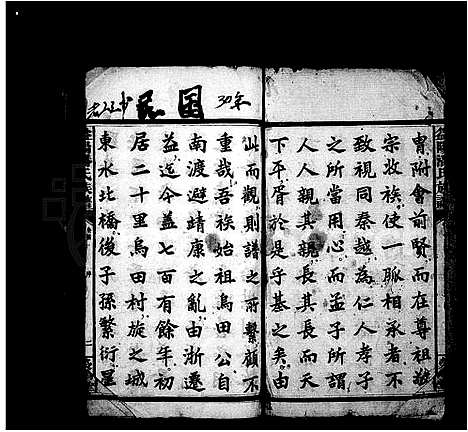 民国30年
胄附會前賢而在尊祖敬
宗收族使一脈相承者不
致視同秦越為仁人孝子
之所當用心而孟子所謂
人人親其親長其長而天
下平胥於是乎基之矣由
此而觀則譜之所繫顧不
重哉吾族始祖烏田公自
南渡避靖康之亂由浙遷
益迄今盖七百有餘年初
居二十里烏田村旋之城
東水北橋後子孫繁衍星